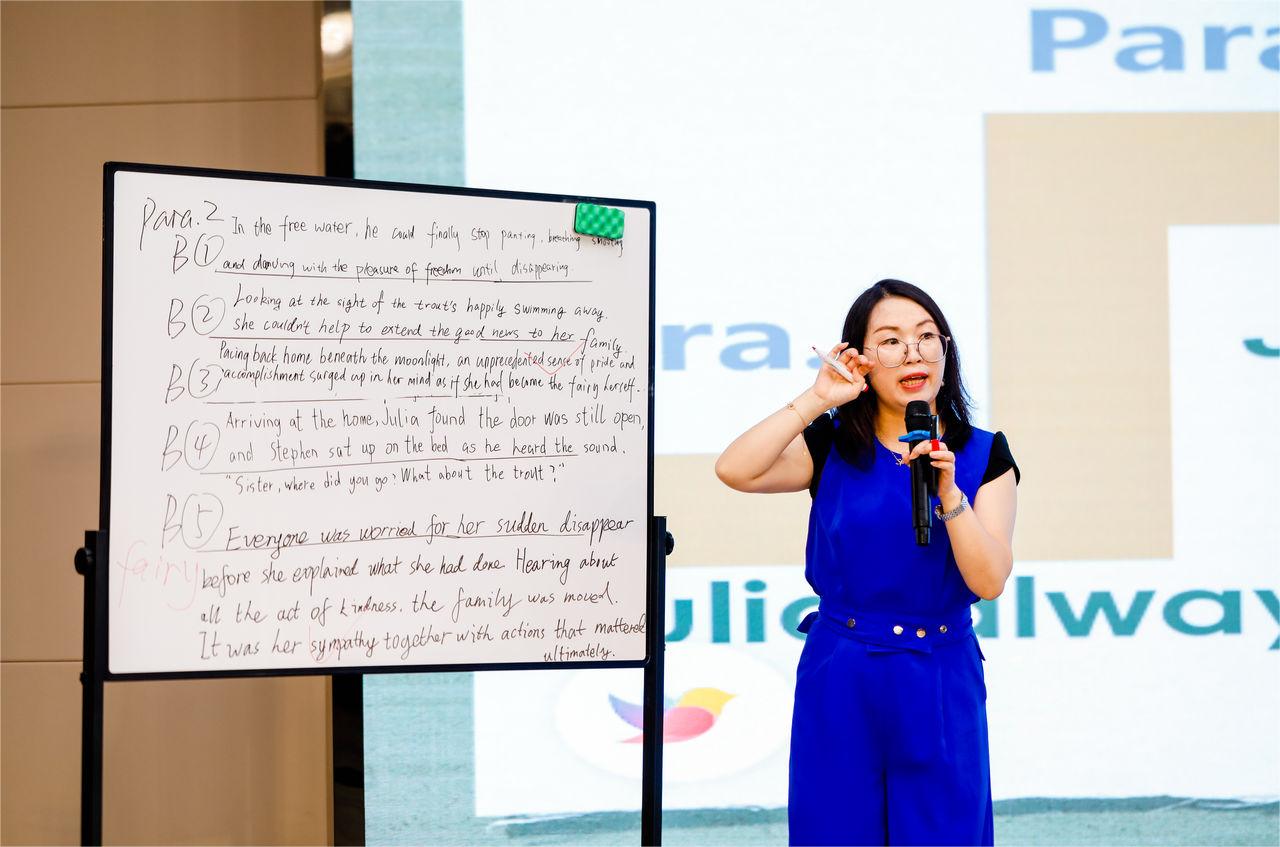 Para.2 In the free water, he could finally stop panting, breathing smoothly
B① and dancing with the pleasure of freedom until disappearing.
B② Looking at the sight of the trout's happily swimming away,
she couldn't help to extend the good news to her family
Pacing back home beneath the moonlight, an unprecedented sense of pride and
B③ accomplishment surged up in her mind as if she had become the fairy herself.
Arriving at the home, Julia found the door was still open,
B④ and Stephen sat up on the bed as he heard the sound.
"Sister, where did you go? What about the trout?"
B⑤ Everyone was worried for her sudden disappear
fairy
before she explained what she had done. Hearing about
all the act of kindness, the family was moved.
It was her sympathy together with actions that mattered
ultimately.
Para
ra.
J
ulia alway